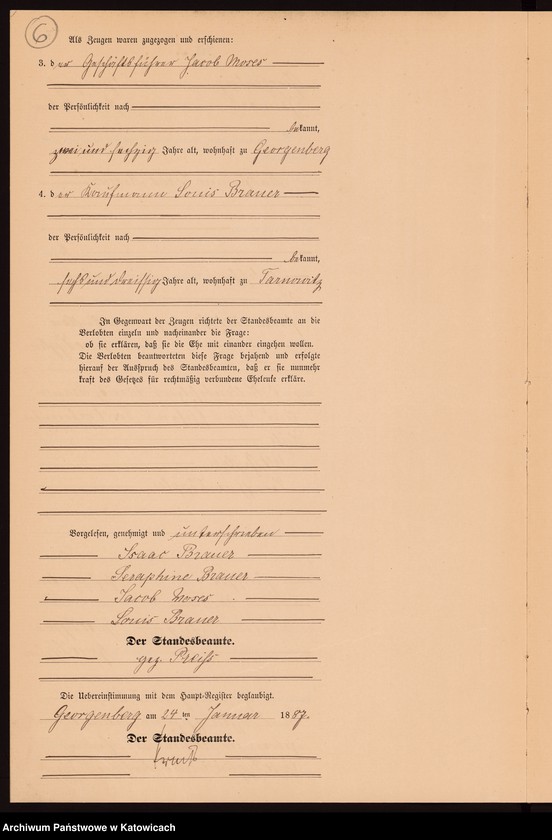 6
Als Zeugen waren zugezogen und erschienen:
3. der Geschäftsführer Jacob Moses
der Persönlichkeit nach
bekannt,
zwei und sechzig Jahre alt, wohnhaft zu Georgenberg
4. der Kaufmann Louis Brauer
der Persönlichkeit nach
bekannt,
sechs und dreissig Jahre alt, wohnhaft zu Tarnowitz
In Gegenwart der Zeugen richtete der Standesbeamte an die
Verlobten einzeln und nacheinander die Frage:
ob sie erklären, daß sie die Ehe mit einander eingehen wollen.
Die Verlobten beantworteten diese Frage bejahend und erfolgte
hierauf der Ausspruch des Standesbeamten, daß er sie nunmehr
kraft des Gesetzes für rechtmäßig verbundene Eheleute erkläre.
Vorgelesen, genehmigt und unterschrieben
Isaac Brauer
Seraphine Brauer
Jacob Moses
Louis Brauer
Der Standesbeamte.
gez. Preiß
Die Uebereinstimmung mit dem Haupt-Register beglaubigt.
Georgenberg am 24 ten Januar 1887.
Der Standesbeamte.
Archiwum Państwowe w Katowicach